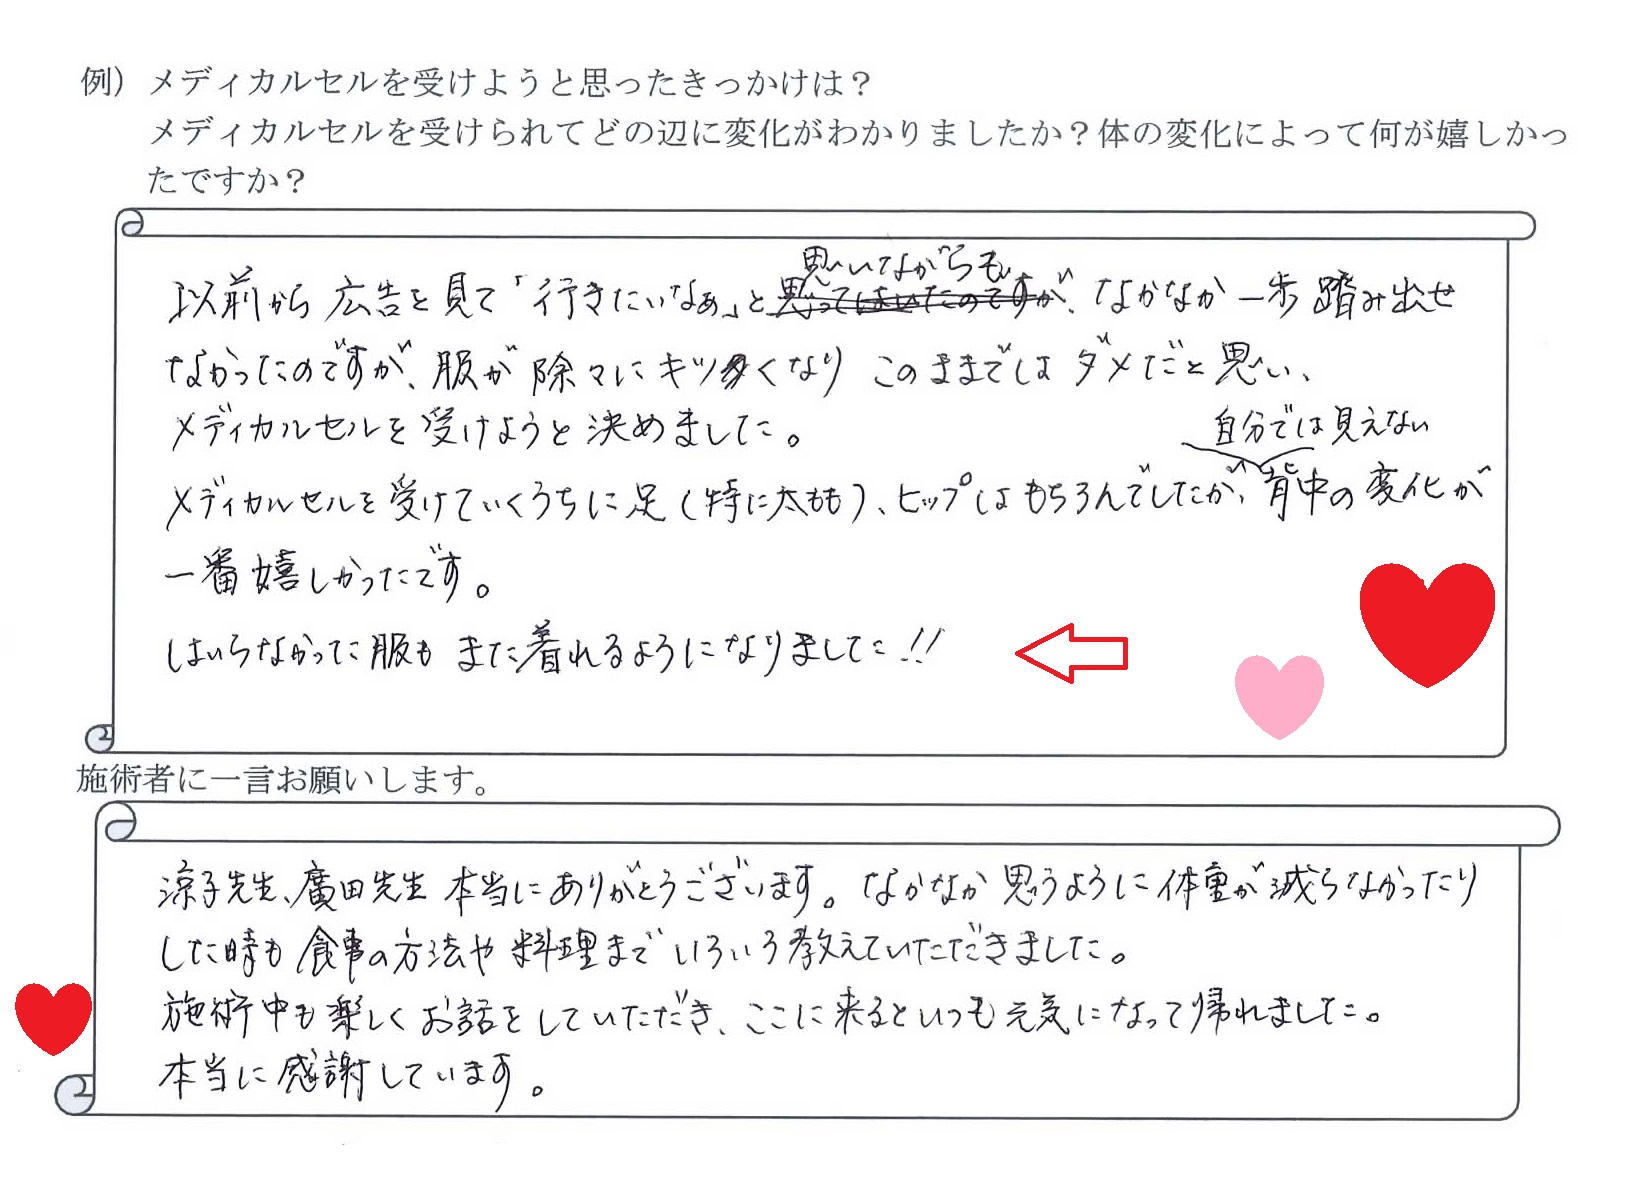 例）メディカルセルを受けようと思ったきっかけは？
メディカルセルを受けられてどの辺に変化がわかりましたか？体の変化によって何が嬉しかっ
たですか？
思いながらも
以前から広告を見て「行きたいなぁ」と思ってはいたのですが、なかなか一歩踏み出せ
なかったのですが、服が除々にキツくなり このままではダメだと思い、
メディカルセルを受けようと決めました。
自分では見えない
メディカルセルを受けていくうちに足（特に太もも）、ヒップはもちろんでしたが、背中の変化が
一番嬉しかったです。
はいらなかった服もまた着れるようになりました!!
施術者に一言お願いします。
涼子先生、廣田先生 本当にありがとうございます。なかなか思うように体重が減らなかったり
した時も食事の方法や料理までいろいろ教えていただきました。
施術中も楽しくお話をしていただき、ここに来るといつも元気になって帰れました。
本当に感謝しています。